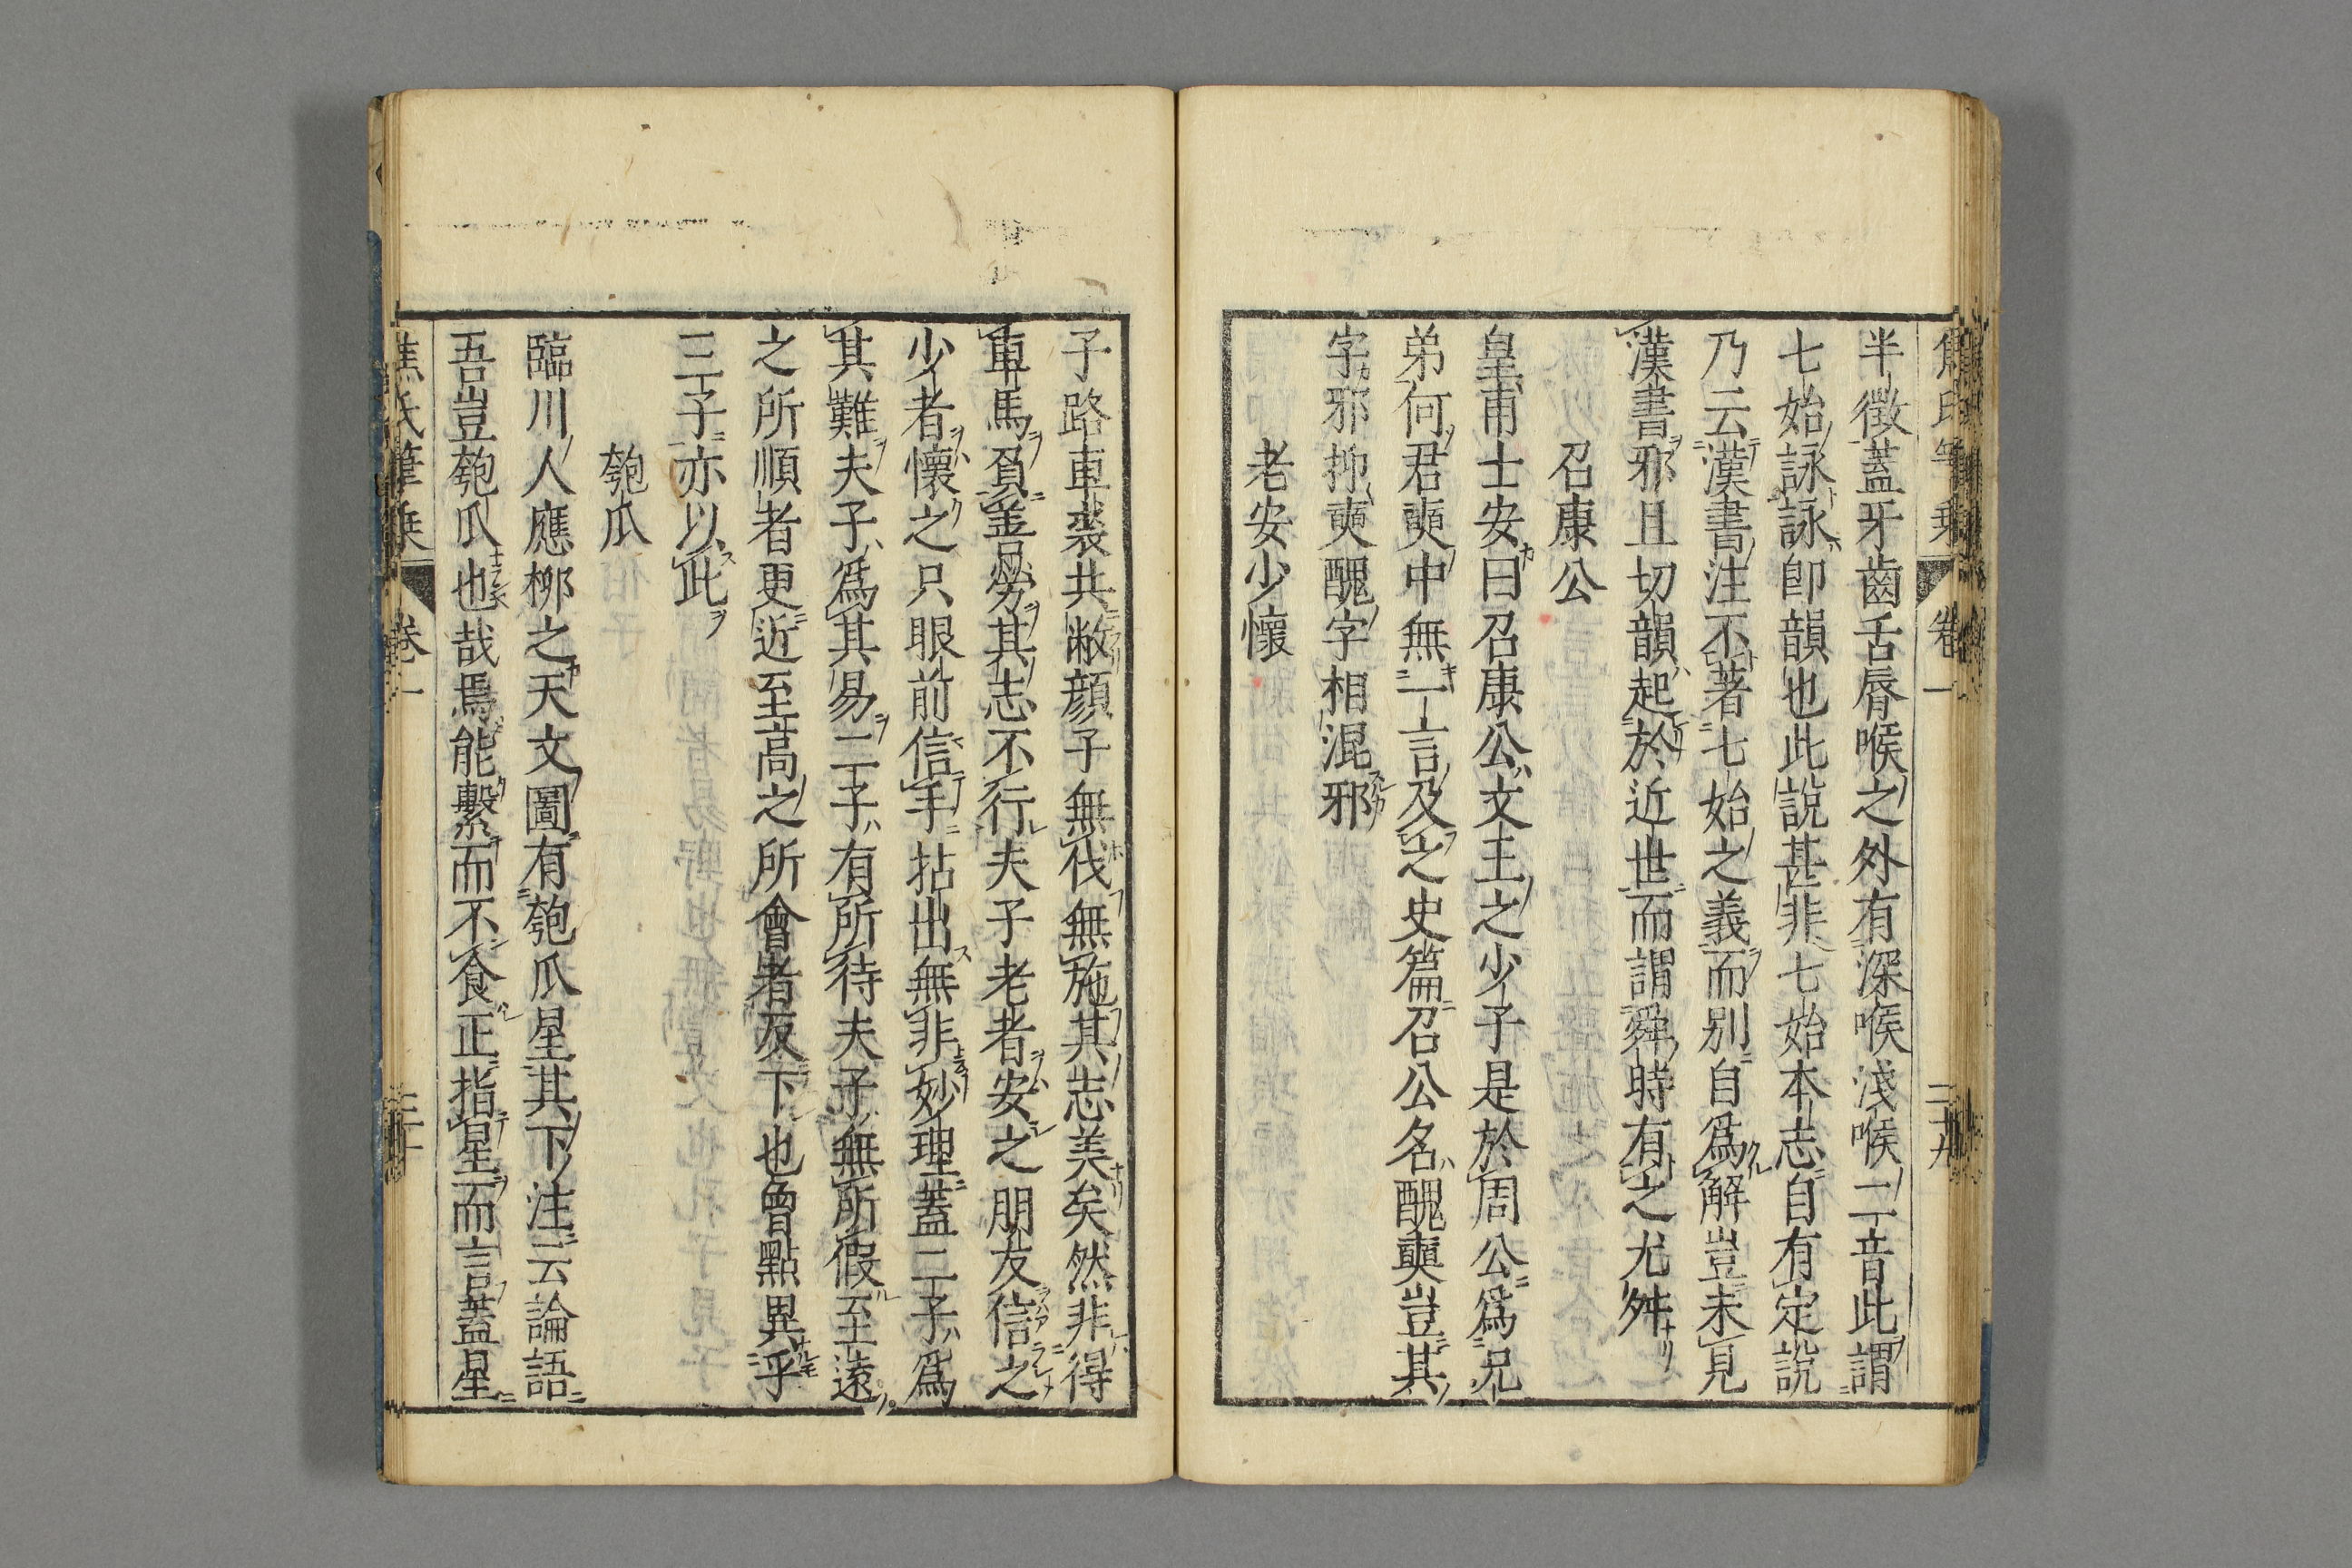 半徴蓋牙齒舌唇喉之外有深喉淺喉二音此謂
七始詠詠卽韻也此說甚非七始本志自有定說
乃云漢書注不著七始之義而别自爲解豈未見
漢書邪且切韻起於近世而謂舜時有之尤舛
召康公
皇甫士安曰召康公文王之少子是於周公爲兄
弟何君奭中無一言及之史篇召公名醜奭豈其
字邪抑奭醜字相混邪
老安少懷
子路車裘共敝顔子無伐無施其志美矣然非得
車馬負善勞其志不行夫子老者安之朋友信之
少者懷之只眼前信手拈出無非妙理蓋二子爲
其難夫子爲其易二子有所待夫子無所假至遠
之所順者更近至高之所會者反下也曾點異乎
三子亦以此
匏瓜
臨川人應栁之天文圖有匏瓜星其下注云論語
吾豈匏瓜也哉焉能繫而不食正指星而言蓋星
焦氏筆乗 卷一 三十